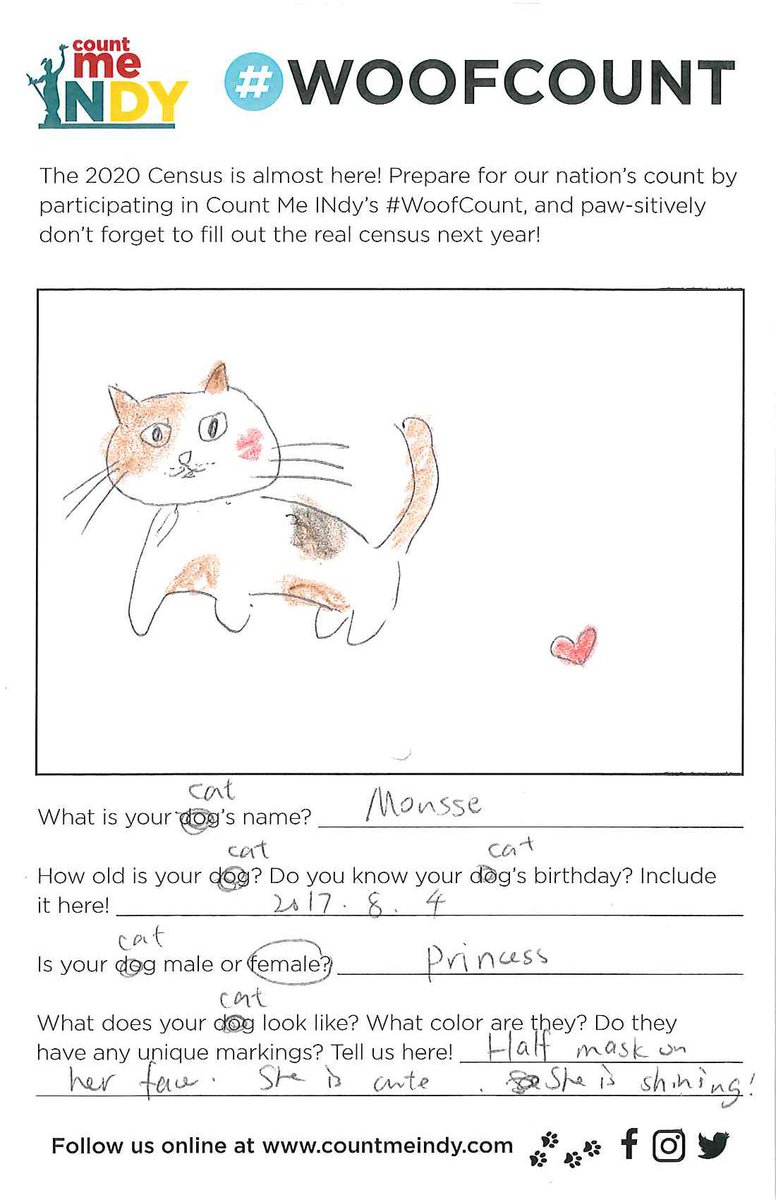 count
me
INDY
#WOOFCOUNT
The 2020 Census is almost here! Prepare for our nation's count by
participating in Count Me INdy's #WoofCount, and paw-sitively
don't forget to fill out the real census next year!
cat
What is your dog's name? Mousse
cat cat
How old is your dog? Do you know your dog's birthday? Include
it here! 2017. 8. 4
cat
Is your dog male or female? Princess
cat
What does your dog look like? What color are they? Do they
have any unique markings? Tell us here! Half mask on
her face. She is cute. She is shining!
Follow us online at www.countmeindy.com